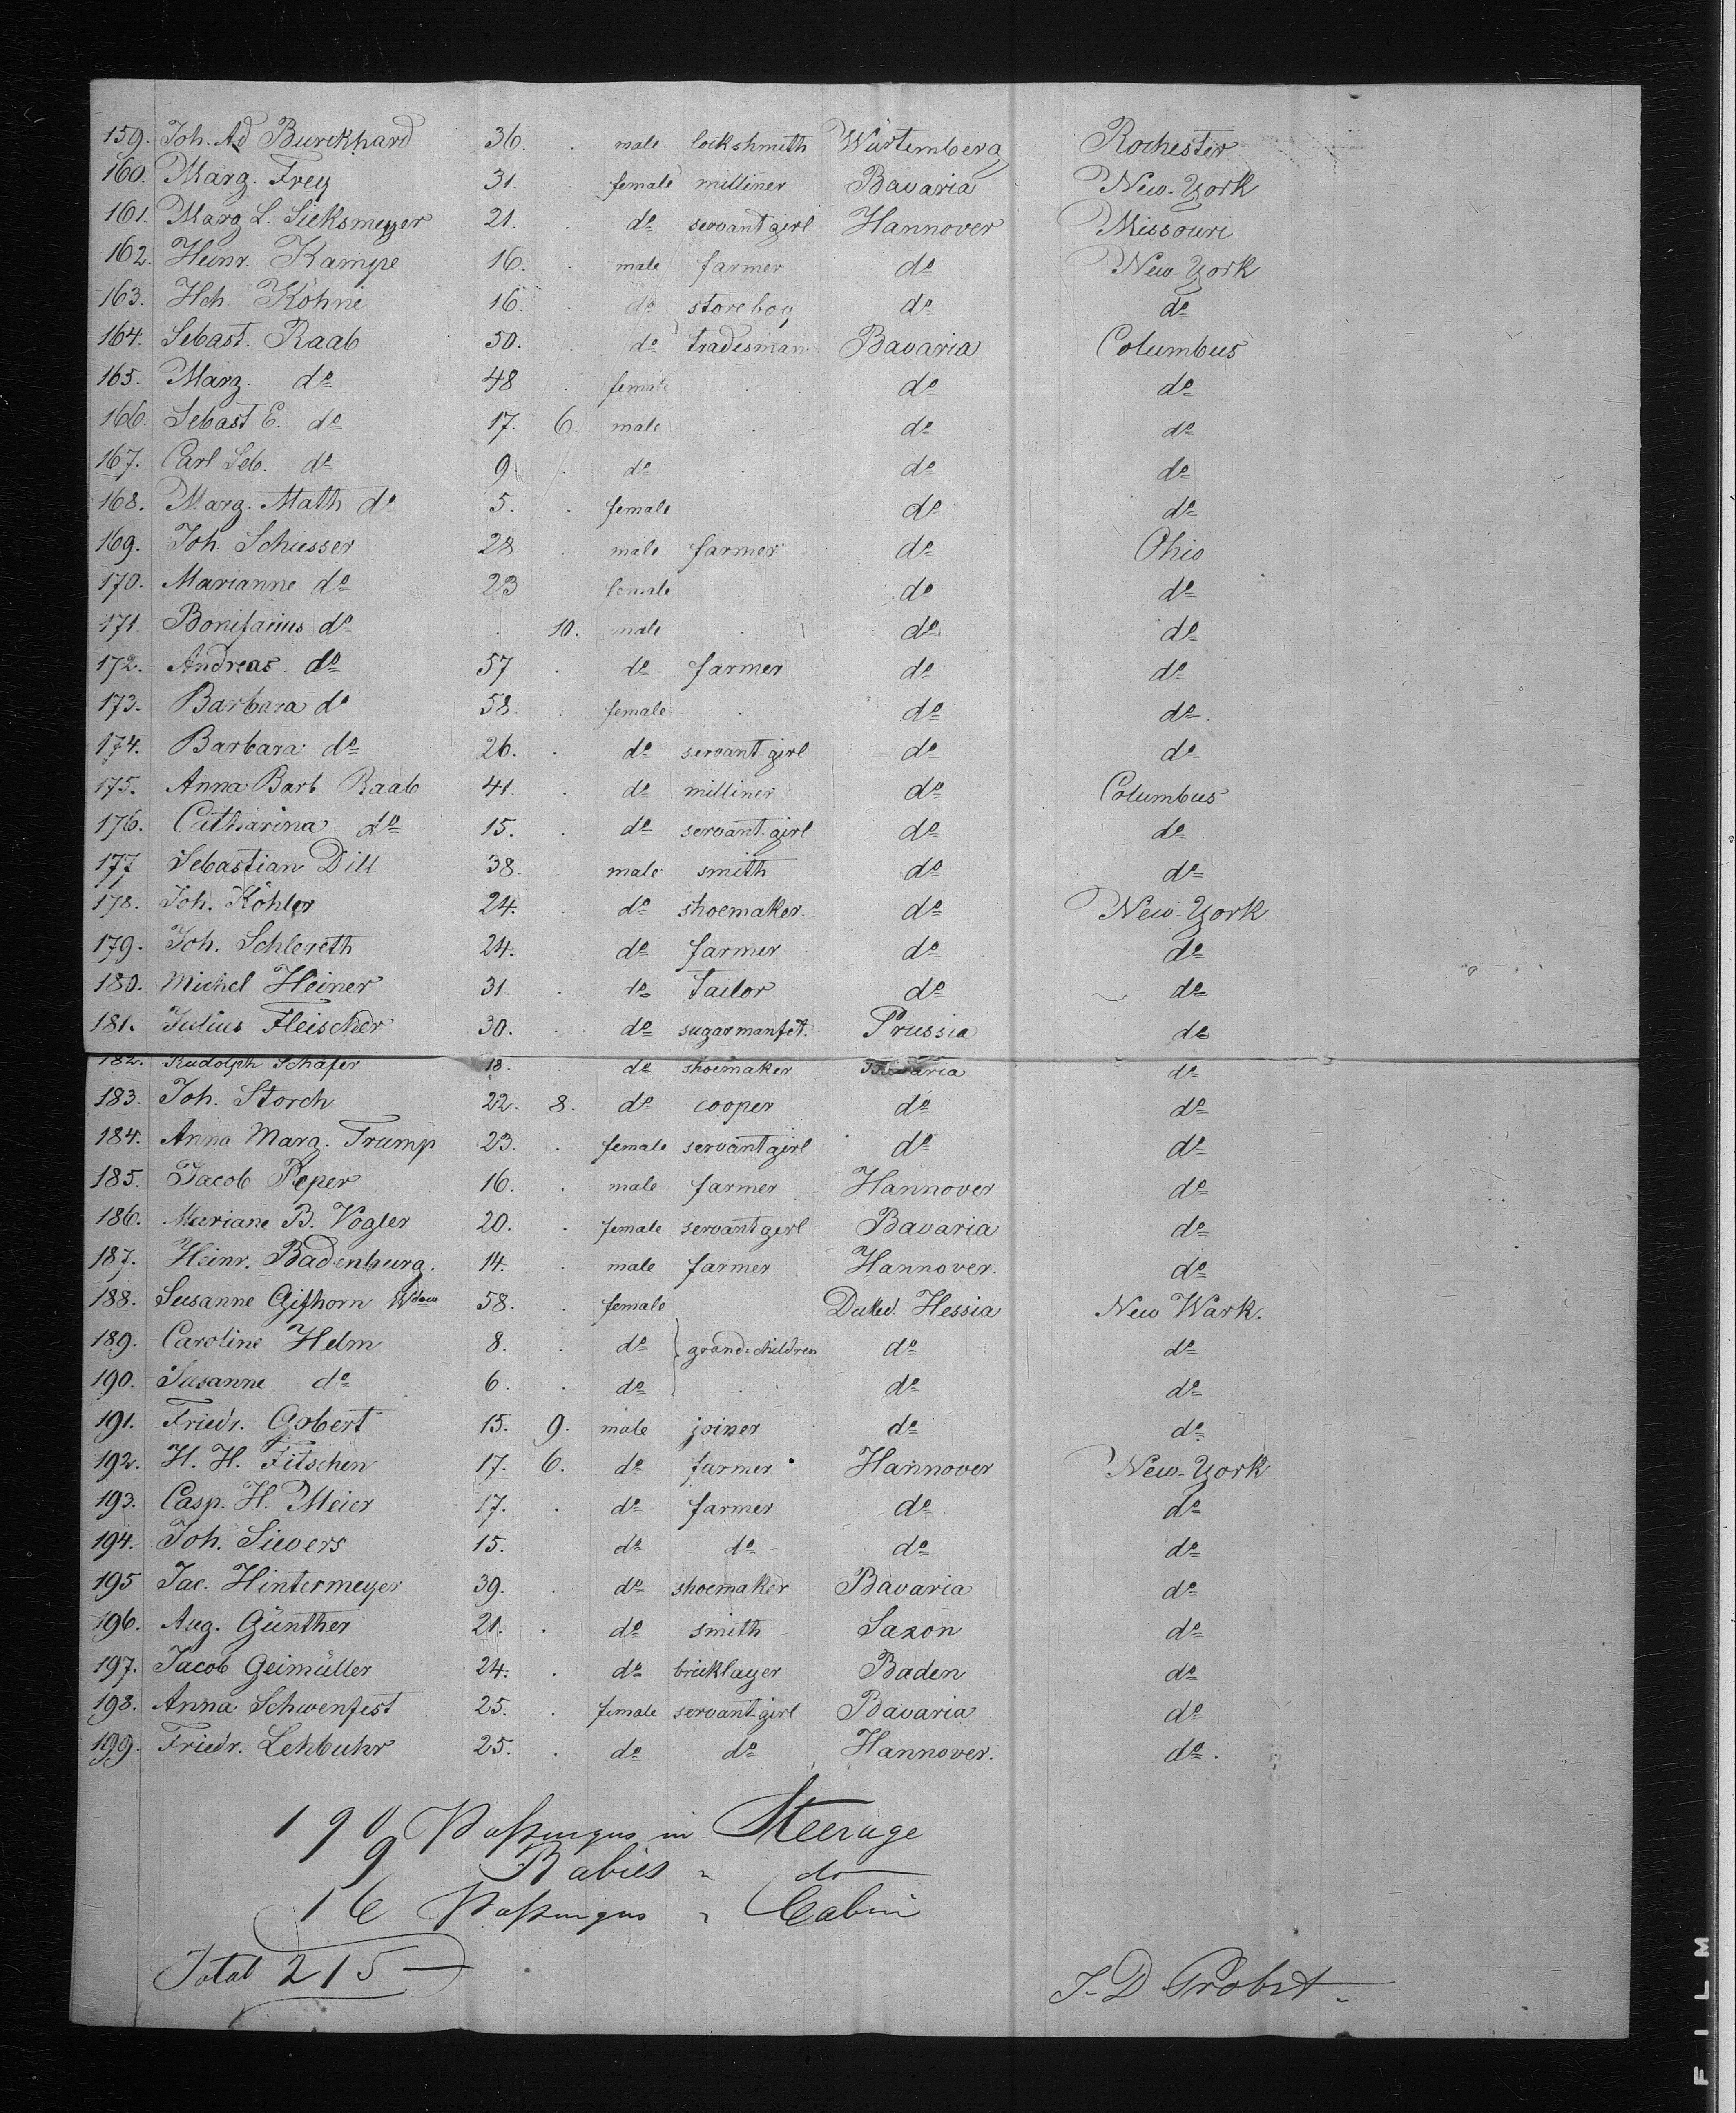 159. Joh. Ad Burckhard 36. male lockshmith Würtemberg Rochester
160. Marg. Frey 31. female milliner Bavaria New-York
161. Marg L. Sieksmeyer 21. do servant girl Hannover Missouri
162. Heinr. Kampe 16. male farmer do New York
163. Hch. Köhne 16. do store boy do do
164. Sebast. Raab 50. do tradesman Bavaria Columbus
165. Marg. do 48 female do do
166. Sebast E. do 17. 6. male do do
167. Carl Seb. do 9. do do do
168. Marg. Math do 5. female do do
169. Joh. Schiesser 28 male farmer do Ohio
170. Marianne do 23 female do do
171. Bonifacius do 10. male do do
172. Andreas do 57 do farmer do do
173. Barbara do 58. female do do.
174. Barbara do 26. do servant-girl do do
175. Anna Barb. Raab 41. do milliner do Columbus
176. Catharina do 15. do servant-girl do do
177 Sebastian Dill 38. male smith do do
178. Joh. Köhler 24. do shoemaker. do New-York
179. Joh. Schlereth 24. do farmer do do
180. Michel Heiner 31. do Tailor do do
181. Julius Fleischer 30. do sugarmanfct. Prussia do
182. Rudolph Schäfer 18. do shoemaker Bavaria do
183. Joh. Storch 22. 8. do cooper do do
184. Anna Marg. Trump 23. female servant girl do do
185. Jacob Peper 16. male farmer Hannover do
186. Mariane B. Vogler 20. female servant girl Bavaria do
187. Heinr. Badenburg. 14. male farmer Hannover. do
188. Susanne Gifhorn Wdow 58. female Duked. Hessia New Wark.
189. Caroline Helm 8. do grand=children do do
190. Susanne do 6. do do do
191. Friedr. Gobert 15. 9. male joiner do do
192. H. H. Fitschen 17. 6. do farmer Hannover New-York
193. Casp. H. Meier 17. do farmer do do
194. Joh. Sievers 15. do do do do
195 Jac. Hintermeyer 39. do shoemaker Bavaria do
196. Aug. Günther 21. do smith Saxon do
197. Jacob Geimüller 24. do bricklayer Baden do
198. Anna Schwenfest 25. female servant-girl Bavaria do
199. Friedr. Lehbuhr 25. do do Hannover. do.
190 Passengers in Steerage
9 Babies " do
16 Passengers " Cabin
Total 215
J. D Probst
FILM